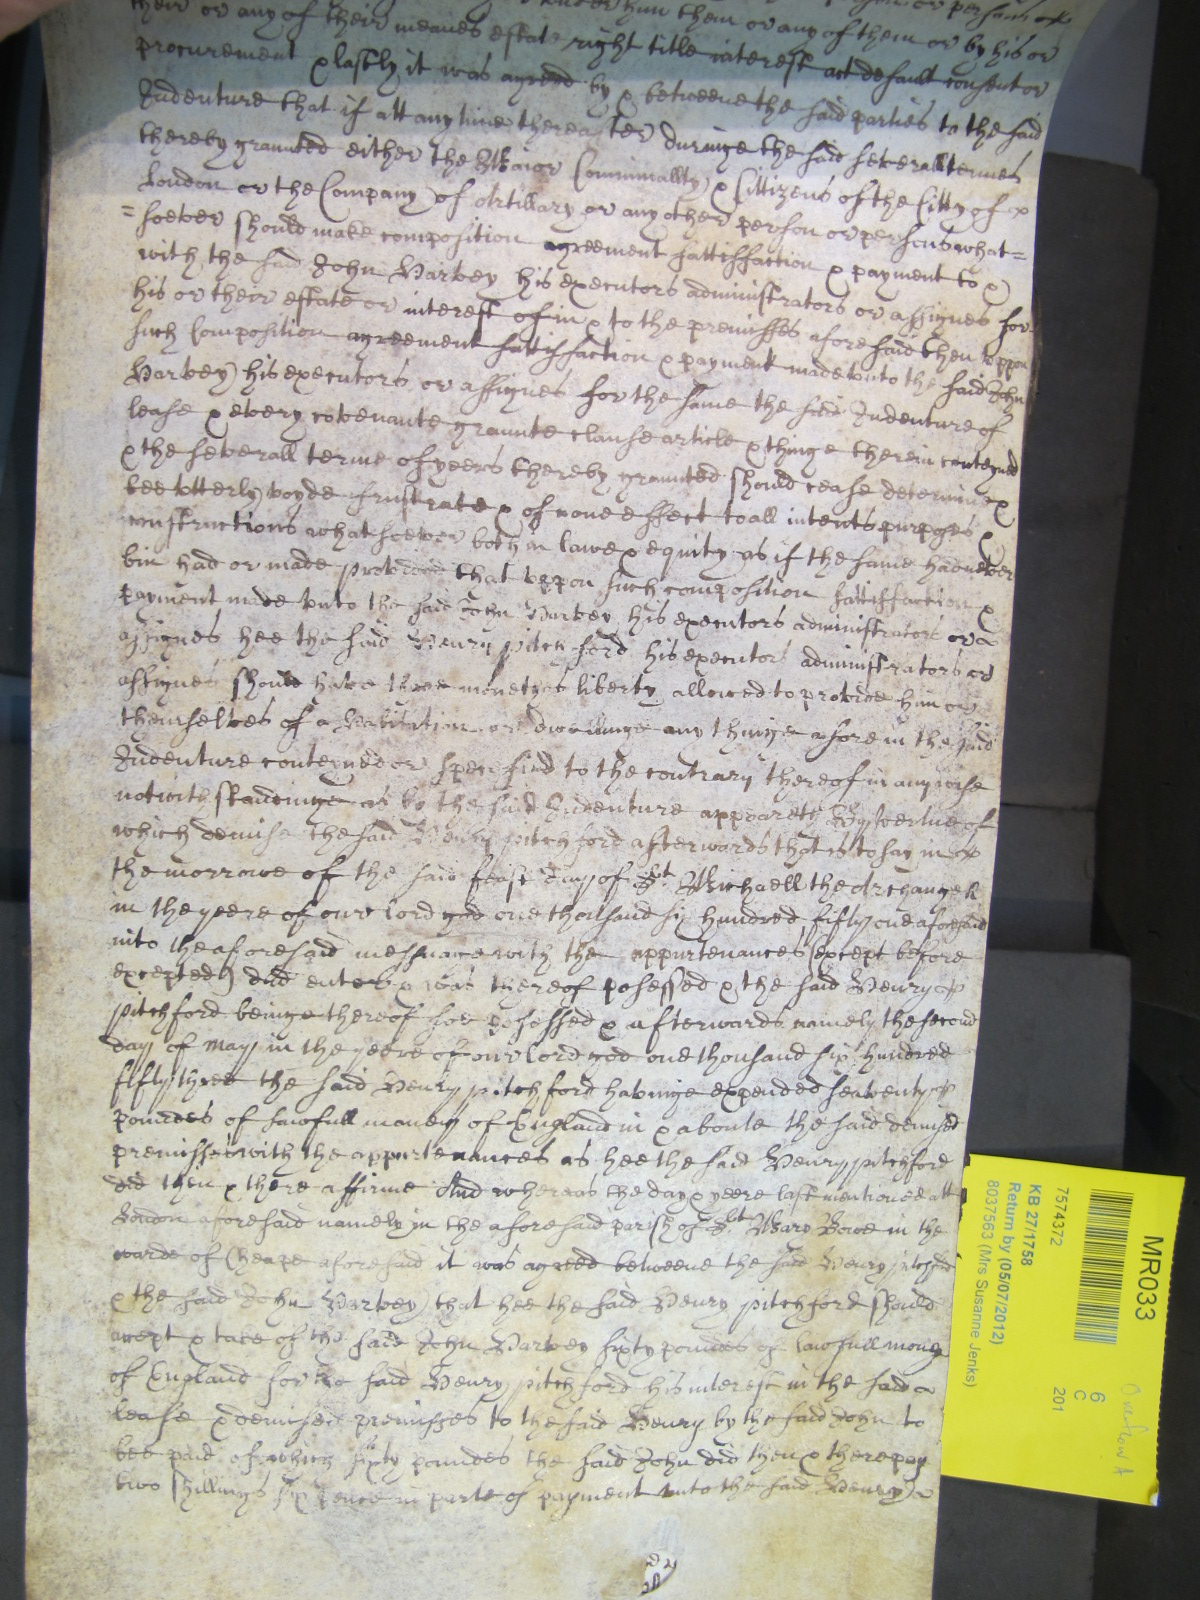 under him them or any of them or by his or
their or any of their meanes estate right title interest act default consent or
procurement & lastly it was agreed by & betweene the said parties to the said
Indenture that if att any time thereafter duringe the said severall termes
thereby graunted either the Maior Comminallty & Cittizens of the Citty of
London or the Company of Artillary or any other person or persons what=
=soever should make composition agreement sattisffaction & payment to &
with the said John Harvey his executors administrators or assignes for
his or their estate or interest of in & to the premisses aforesaid then uppon
such Composition agreement sattisfaction & payment made unto the said John
Harvey his executors or assignes for the same the said Indenture of
lease & every covenante graunte clause article & thinge therein conteyned
& the severall terme of yeers thereby graunted should cease determin &
bee utterly voyde frustrate & of none effect to all intents purposes &
constructions whatsoever both in lawe & equity as if the same had never
bin had or made provided that uppon such composition sattisfaction &
payment made unto the said John Harvey his executors administrators or
assignes hee the said Henry Pitchford his executors administrators or
assignes should have three monethes liberty allowed to provide him or
themselves of a Habitation or dwellinge any thinge afore in the said
Indenture conteyned or specified to the contrary thereof in any wise
notwithstandinge as by the said Indenture appeareth By vertue of
which demise the said Henry Pitchford afterwords that is to say in
the morrowe of the said feast day of St Michaell the Archangell
in the yeere of our lord god one thousand six hundred fifty one aforesaid
into the aforesaid messuage with the appurtenances (except before
excepted) did enter & was thereof posessed & the said Henry
Pitchford beinge thereof soe posessed & afterwards namely the second
day of May in the yeere of our lord god one thousand six hundred
fifty three the said Henry Pitchford havinge expended seaventy
poundes of lawfull money of England in & aboute the said demised
premisses with the appurtenances as hee the said Henry Pitchford
did then & there affirme And whereas the day & yeere last mentioned att
London aforesaid namely in the aforesaid parish of St Mary Bowe in the
warde of Cheape aforesaid it was agreed betweene the said Henry Pitchford
& the said John Harvey that hee the said Henry Pitchford should
accept & take of the said John Harvey sixty poundes of lawfull money
of England for the said Henry Pitchford his interest in the said
lease & demised premisses to the said Henry by the said John to
bee paid of which sixty poundes the said John did then & there pay
two shillings six pence in parte of payment unto the said Henry
MR033
7574372
KB 27/1758
Return by (05/07/2012)
8037563 (Mrs Susanne Jenks)
6
C
201